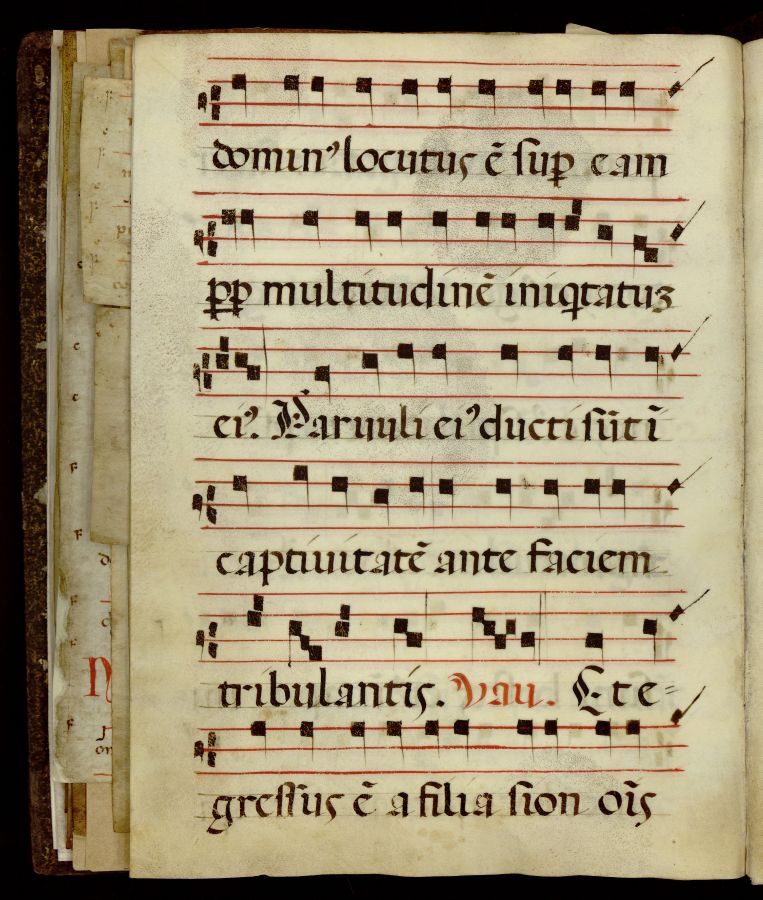 dominꝰ locutus ē suꝑ eam
ꝓꝑ multitudinē iniqͥtatuꝫ
eiꝰ. Paruuli eiꝰ ducti sūt ī
captiuitatē ante faciem
tribulantis. Vau. Et e=
gressus ē a filia sion oīs